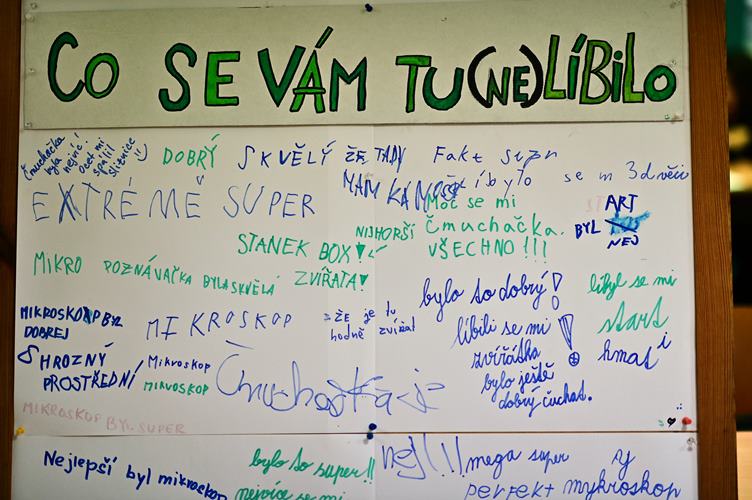 CO SE VÁM TU (NE)LÍBILO
Čmuchačka
byla
nejvíc!
Ocet mi
spálil
sliznice
DOBRÝ
SKVĚLÝ
ŽE TADY
MÁM KÁMOŠE
Fakt super
se m 3d věci
EXTRÉMĚ SUPER
Moc se mi
líbylo
Čmuchačka.
VŠECHNO!!!
START
BYL
NEJ
NEJHORŠÍ
STANEK BOX!
ZVÍŘATA!
MIKRO
POZNÁVAČKA BYLA SKVĚLÁ
bylo to dobrý!
líbyl se mi
start
hmat i
MIKROSKOP BYL
DOBREJ
MIKROSKOP
ŽE je tu
hodně zvířat
líbili se mi
zvířátka
bylo ještě
dobrý čuchat.
HROZNÝ
PROSTŘEDNÍ
Mikroskop
MIKROSKOP
Čmuchačka je
MIKROSKOP BYL SUPER
nej!!!
Nejlepší byl mikroskop
bylo to super!!
nejvíce se mi
mega super
perfekt mykroskop